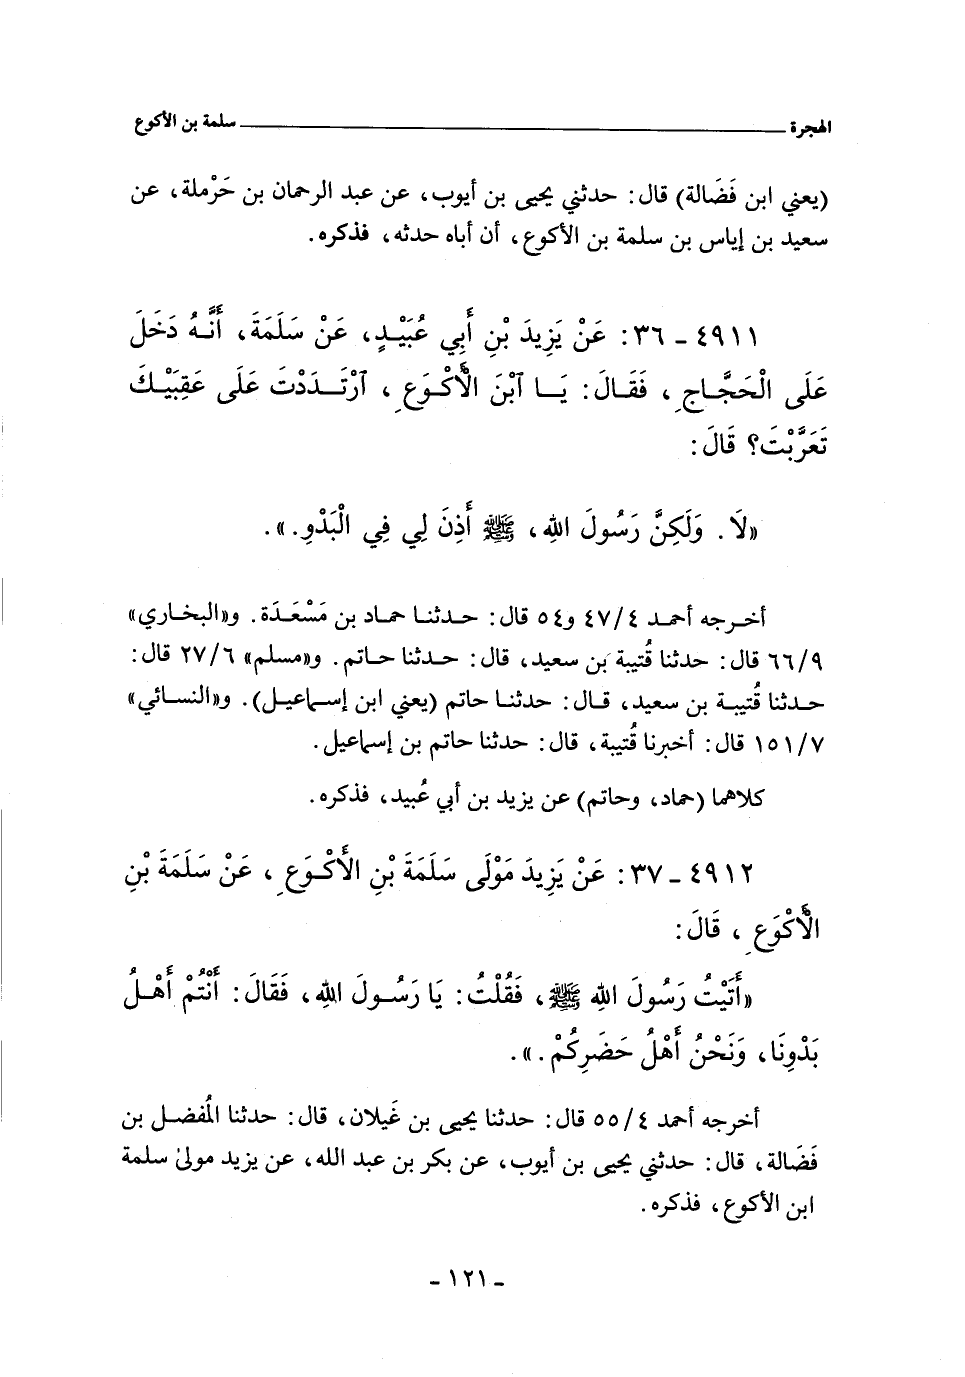 الهجرة ــــــــــ سلمة بن الأكوع
(يعني ابن فَضَالة) قال: حدثني يحيى بن أيوب، عن عبد الرحمان بن حَرْملة، عن
سعيد بن إياس بن سلمة بن الأكوع، أن أباه حدثه، فذكره.
٤٩١١ - ٣٦: عَنْ يَزِيدَ بْنِ أَبِي عُبَيْدٍ، عَنْ سَلَمَةَ، أَنَّهُ دَخَلَ
عَلَى الْحَجَّاجِ، فَقَالَ: يَا آبْنَ الْأَكْوَعِ، آرْتَدَدْتَ عَلَى عَقِبَيْكَ
تَعَرَّبْتَ؟ قَالَ:
«لَا. وَلَكِنَّ رَسُولَ اللهِ، ﷺ أَذِنَ لِي فِي الْبَدْوِ.».
أخرجه أحمد ٤٧/٤ و٥٤ قال: حدثنا حماد بن مَسْعَدَة. و«البخاري»
٦٦/٩ قال: حدثنا قُتيبة بن سعيد، قال: حدثنا حاتم. و«مسلم» ٢٧/٦ قال:
حدثنا قُتيبة بن سعيد، قال: حدثنا حاتم (يعني ابن إسماعيل). و«النسائي»
١٥١/٧ قال: أخبرنا قُتيبة، قال: حدثنا حاتم بن إسماعيل.
كلاهما (حماد، وحاتم) عن يزيد بن أبي عُبيد، فذكره.
٤٩١٢ - ٣٧: عَنْ يَزِيدَ مَوْلَى سَلَمَةَ بْنِ الأَكْوَعِ، عَنْ سَلَمَةَ بْنِ
الْأَكْوَعِ، قَالَ:
«أَتَيْتُ رَسُولَ اللهِ ﷺ، فَقُلْتُ: يَا رَسُولَ اللهِ، فَقَالَ: أَنْتُمْ أَهْلُ
بَدْوِنَا، وَنَحْنُ أَهْلُ حَضَرِكُمْ.».
أخرجه أحمد ٥٥/٤ قال: حدثنا يحيى بن غَيلان، قال: حدثنا المُفضل بن
فَضَالة، قال: حدثني يحيى بن أيوب، عن بكر بن عبد الله، عن يزيد مولى سلمة
ابن الأكوع، فذكره.
- ١٢١ -